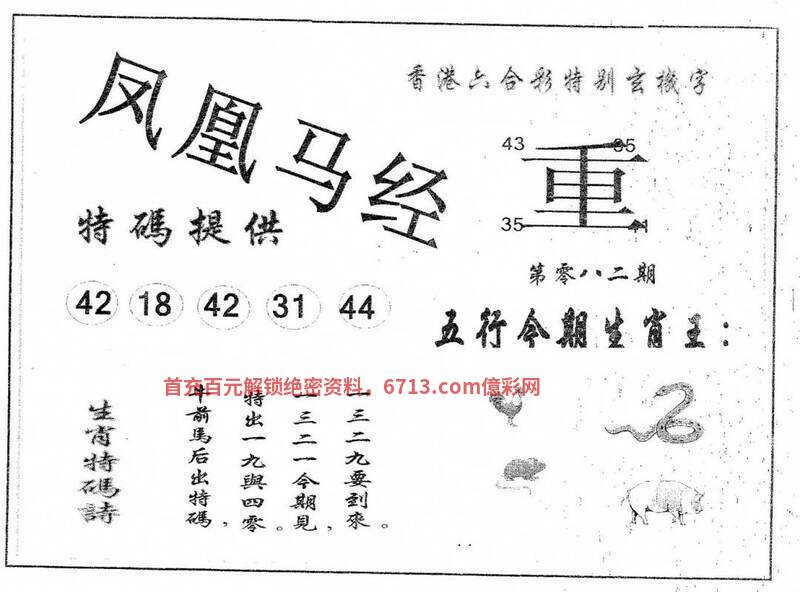 凤凰马经
香港六合彩特别玄機字
43
重
35
特碼提供
第零八二期
42 18 42 31 44
五行今期生肖王：
首充百元解锁绝密资料，6713.com億彩网
生肖特碼詩
牛前馬后出特碼，
特出一九與四零。
一三二一今期見，
一三二九要到來。